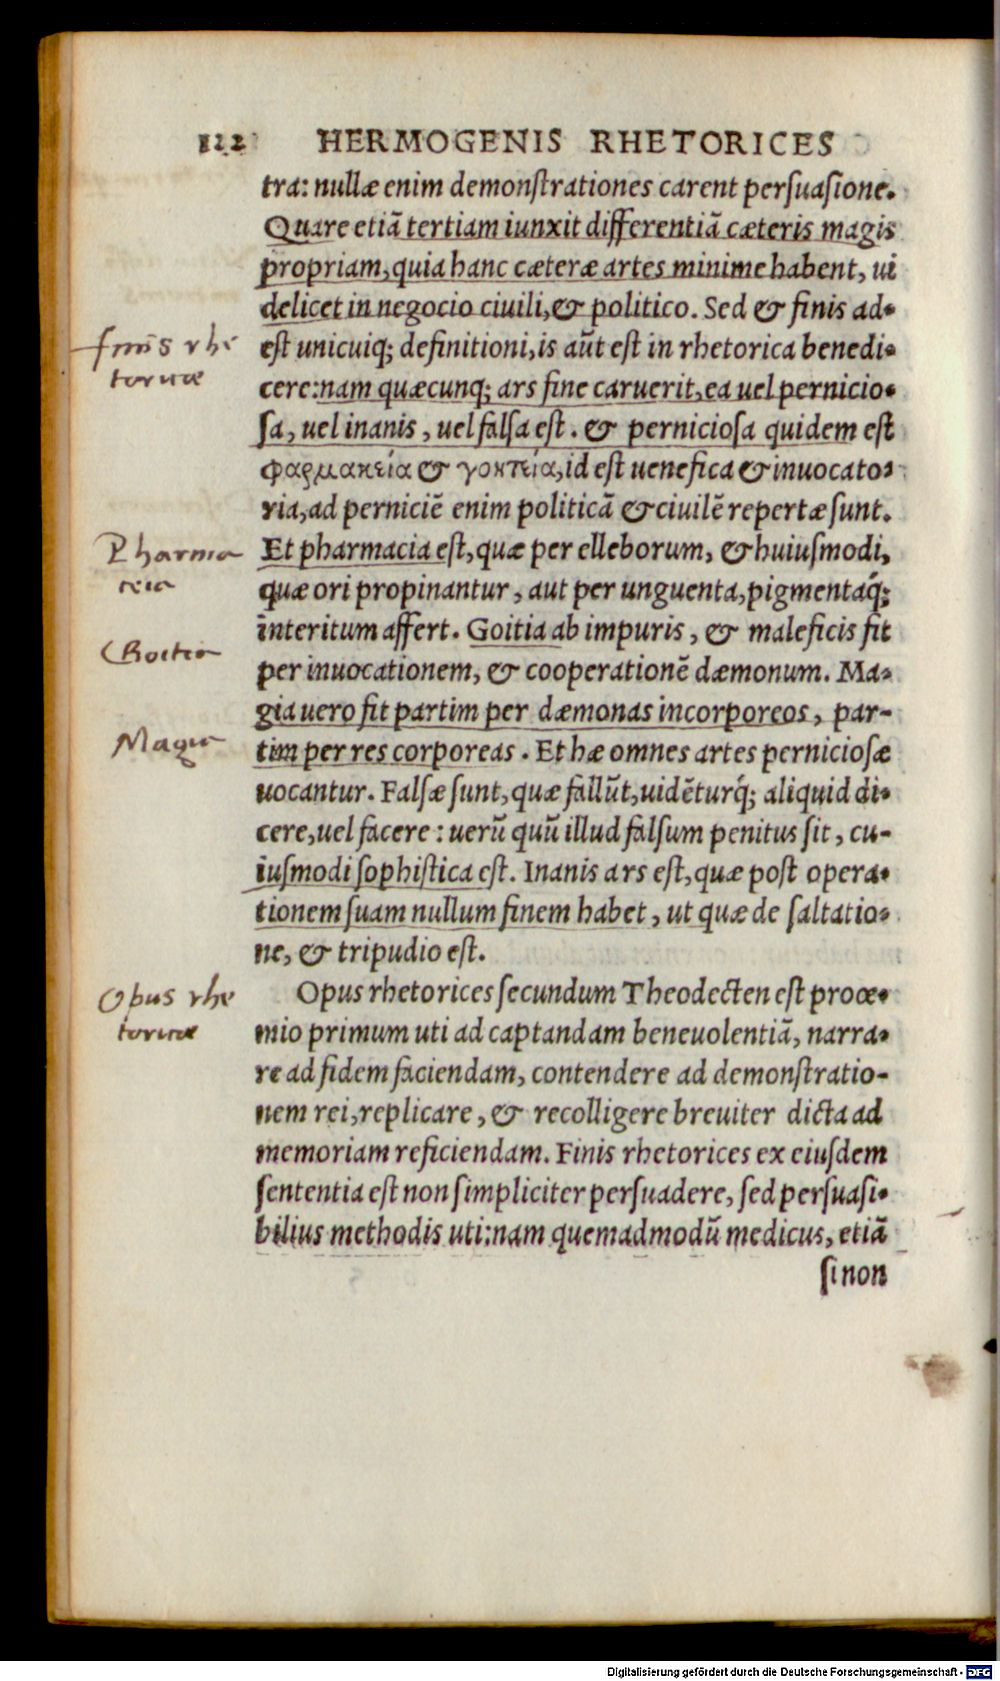 112 HERMOGENIS RHETORICES
tra: nullæ enim demonſtrationes carent perſuaſione.
Quare etiã tertiam iunxit differentiã cæteris magis
propriam, quia hanc cæteræ artes minime habent, ui
delicet in negocio ciuili, & politico. Sed & finis ad-
eſt unicuiq; definitioni, is aũt eſt in rhetorica benedi-
cere: nam quæcunq; ars fine caruerit, ea uel pernicio-
ſa, uel inanis, uel falſa eſt. & perniciosa quidem eſt
φαρμακεία & γοητεία, id eſt uenefica & inuocato-
ria, ad perniciẽ enim politicã & ciuilẽ repertæ ſunt.
Et pharmacia eſt, quæ per elleborum, & huiuſmodi,
quæ ori propinantur, aut per unguenta, pigmentaq́;
interitum affert. Goitia ab impuris, & maleficis fit
per inuocationem, & cooperationẽ dæmonum. Ma-
gia uero fit partim per dæmonas incorporeos, par-
tim per res corporeas. Et hæ omnes artes pernicioſæ
uocantur. Falſæ ſunt, quæ fallũt, uidẽturq́; aliquid di-
cere, uel facere: uerũ quũ illud falſum penitus ſit, cu-
iuſmodi ſophiſtica eſt. Inanis ars eſt, quæ poſt opera-
tionem ſuam nullum finem habet, ut quæ de ſaltatio-
ne, & tripudio eſt.
Opus rhetorices ſecundum Theodecten eſt proœ-
mio primum uti ad captandam beneuolentiã, narra-
re ad fidem faciendam, contendere ad demonſtratio-
nem rei, replicare, & recolligere breuiter dicta ad
memoriam reficiendam. Finis rhetorices ex eiuſdem
ſententia eſt non ſimpliciter perſuadere, ſed perſuaſi-
bilius methodis uti: nam quemadmodũ medicus, etiã
ſi non
finis rhe
toricæ
Pharma
ceia
Goitia
Magia
Opus rhe
toricæ
Digitalisierung gefördert durch die Deutsche Forschungsgemeinschaft - DFG